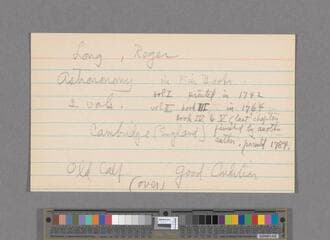 Long, Roger
Astronomy in Five Books
2 vols. vol I printed in 1742
vol II book III in 1764
book IV & V (last chapters
Cambridge (England) finished by another
author. printed 1784.
Old Calf Good Condition
(over)